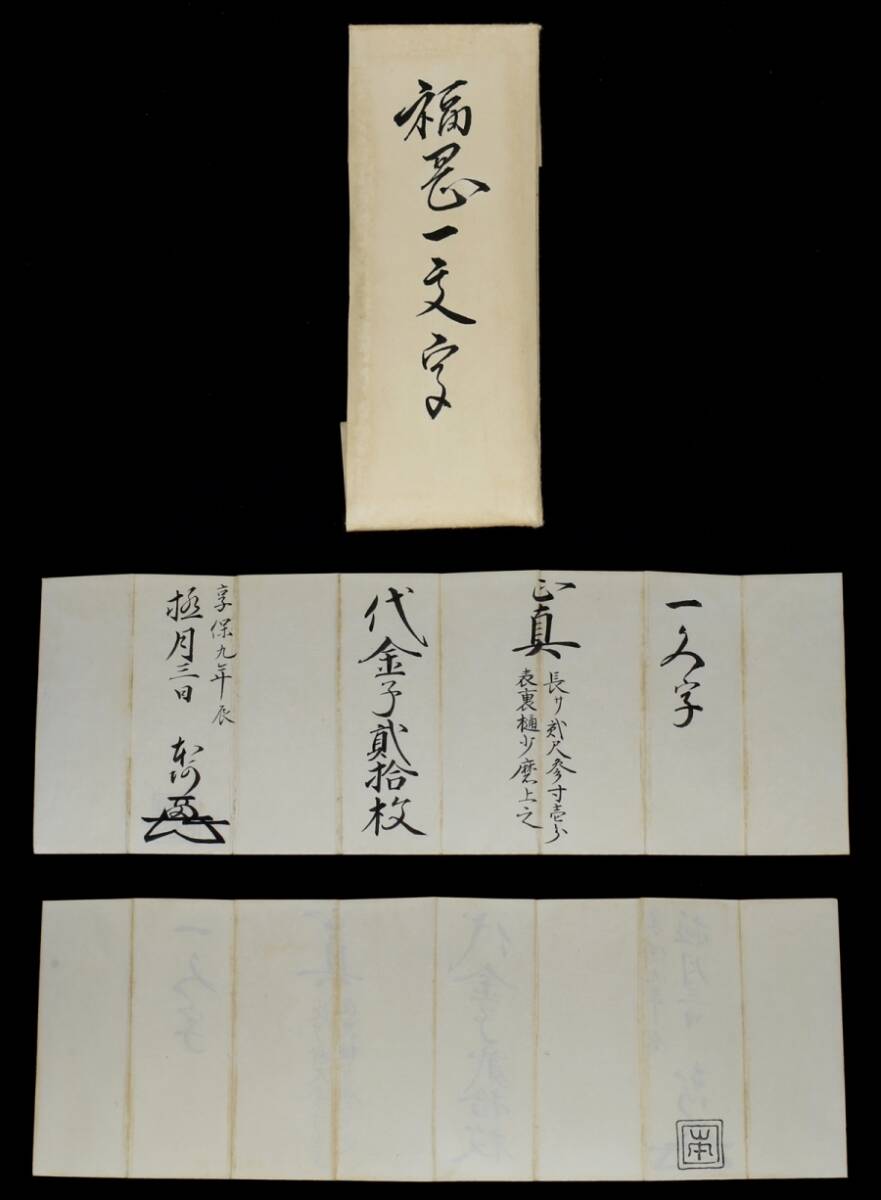 福岡一文字
一文字
正真
長サ貳尺参寸壱分
表裏樋少磨上之
代金子貳拾枚
享保九年辰
極月三日 本阿
本